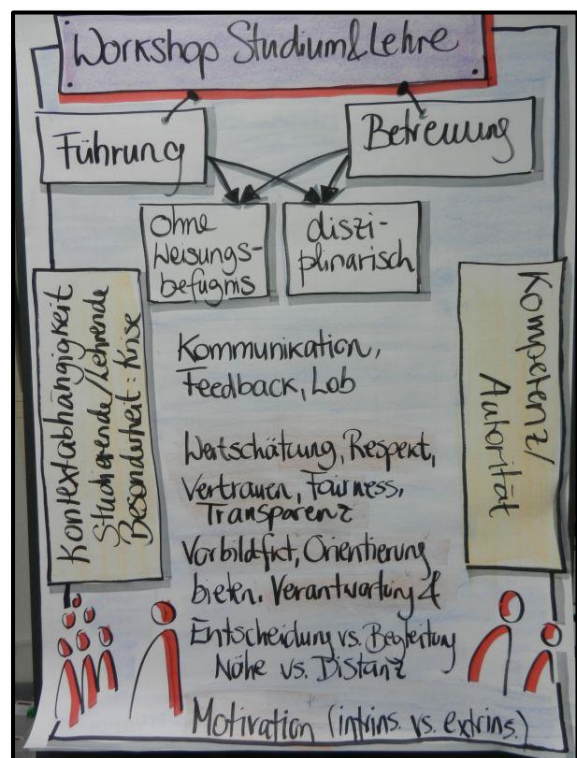 Workshop Studium & Lehre
Führung
Betreuung
Ohne
Weisungs-
befugnis
diszi-
plinarisch
Kontextabhängigkeit
Studierende/Lehrende
Besonderheit: Krise
Kompetenz/
Autorität
Kommunikation,
Feedback, Lob
Wertschätzung, Respekt,
Vertrauen, Fairness,
Transparenz
Orientierung
bieten. Verantwortung
Entscheidung vs. Begleitung
Nähe vs. Distanz
Motivation (intrins. vs. extrins.)